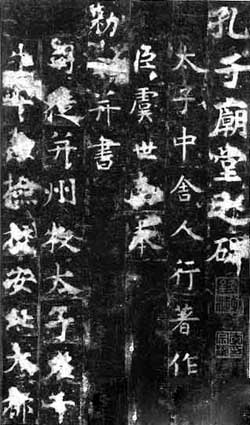 孔子廟堂之碑
太子中舍人行著作
臣虞世南奉
勅并書
司徒并州牧太子左千
牛率兼檢校安北大都